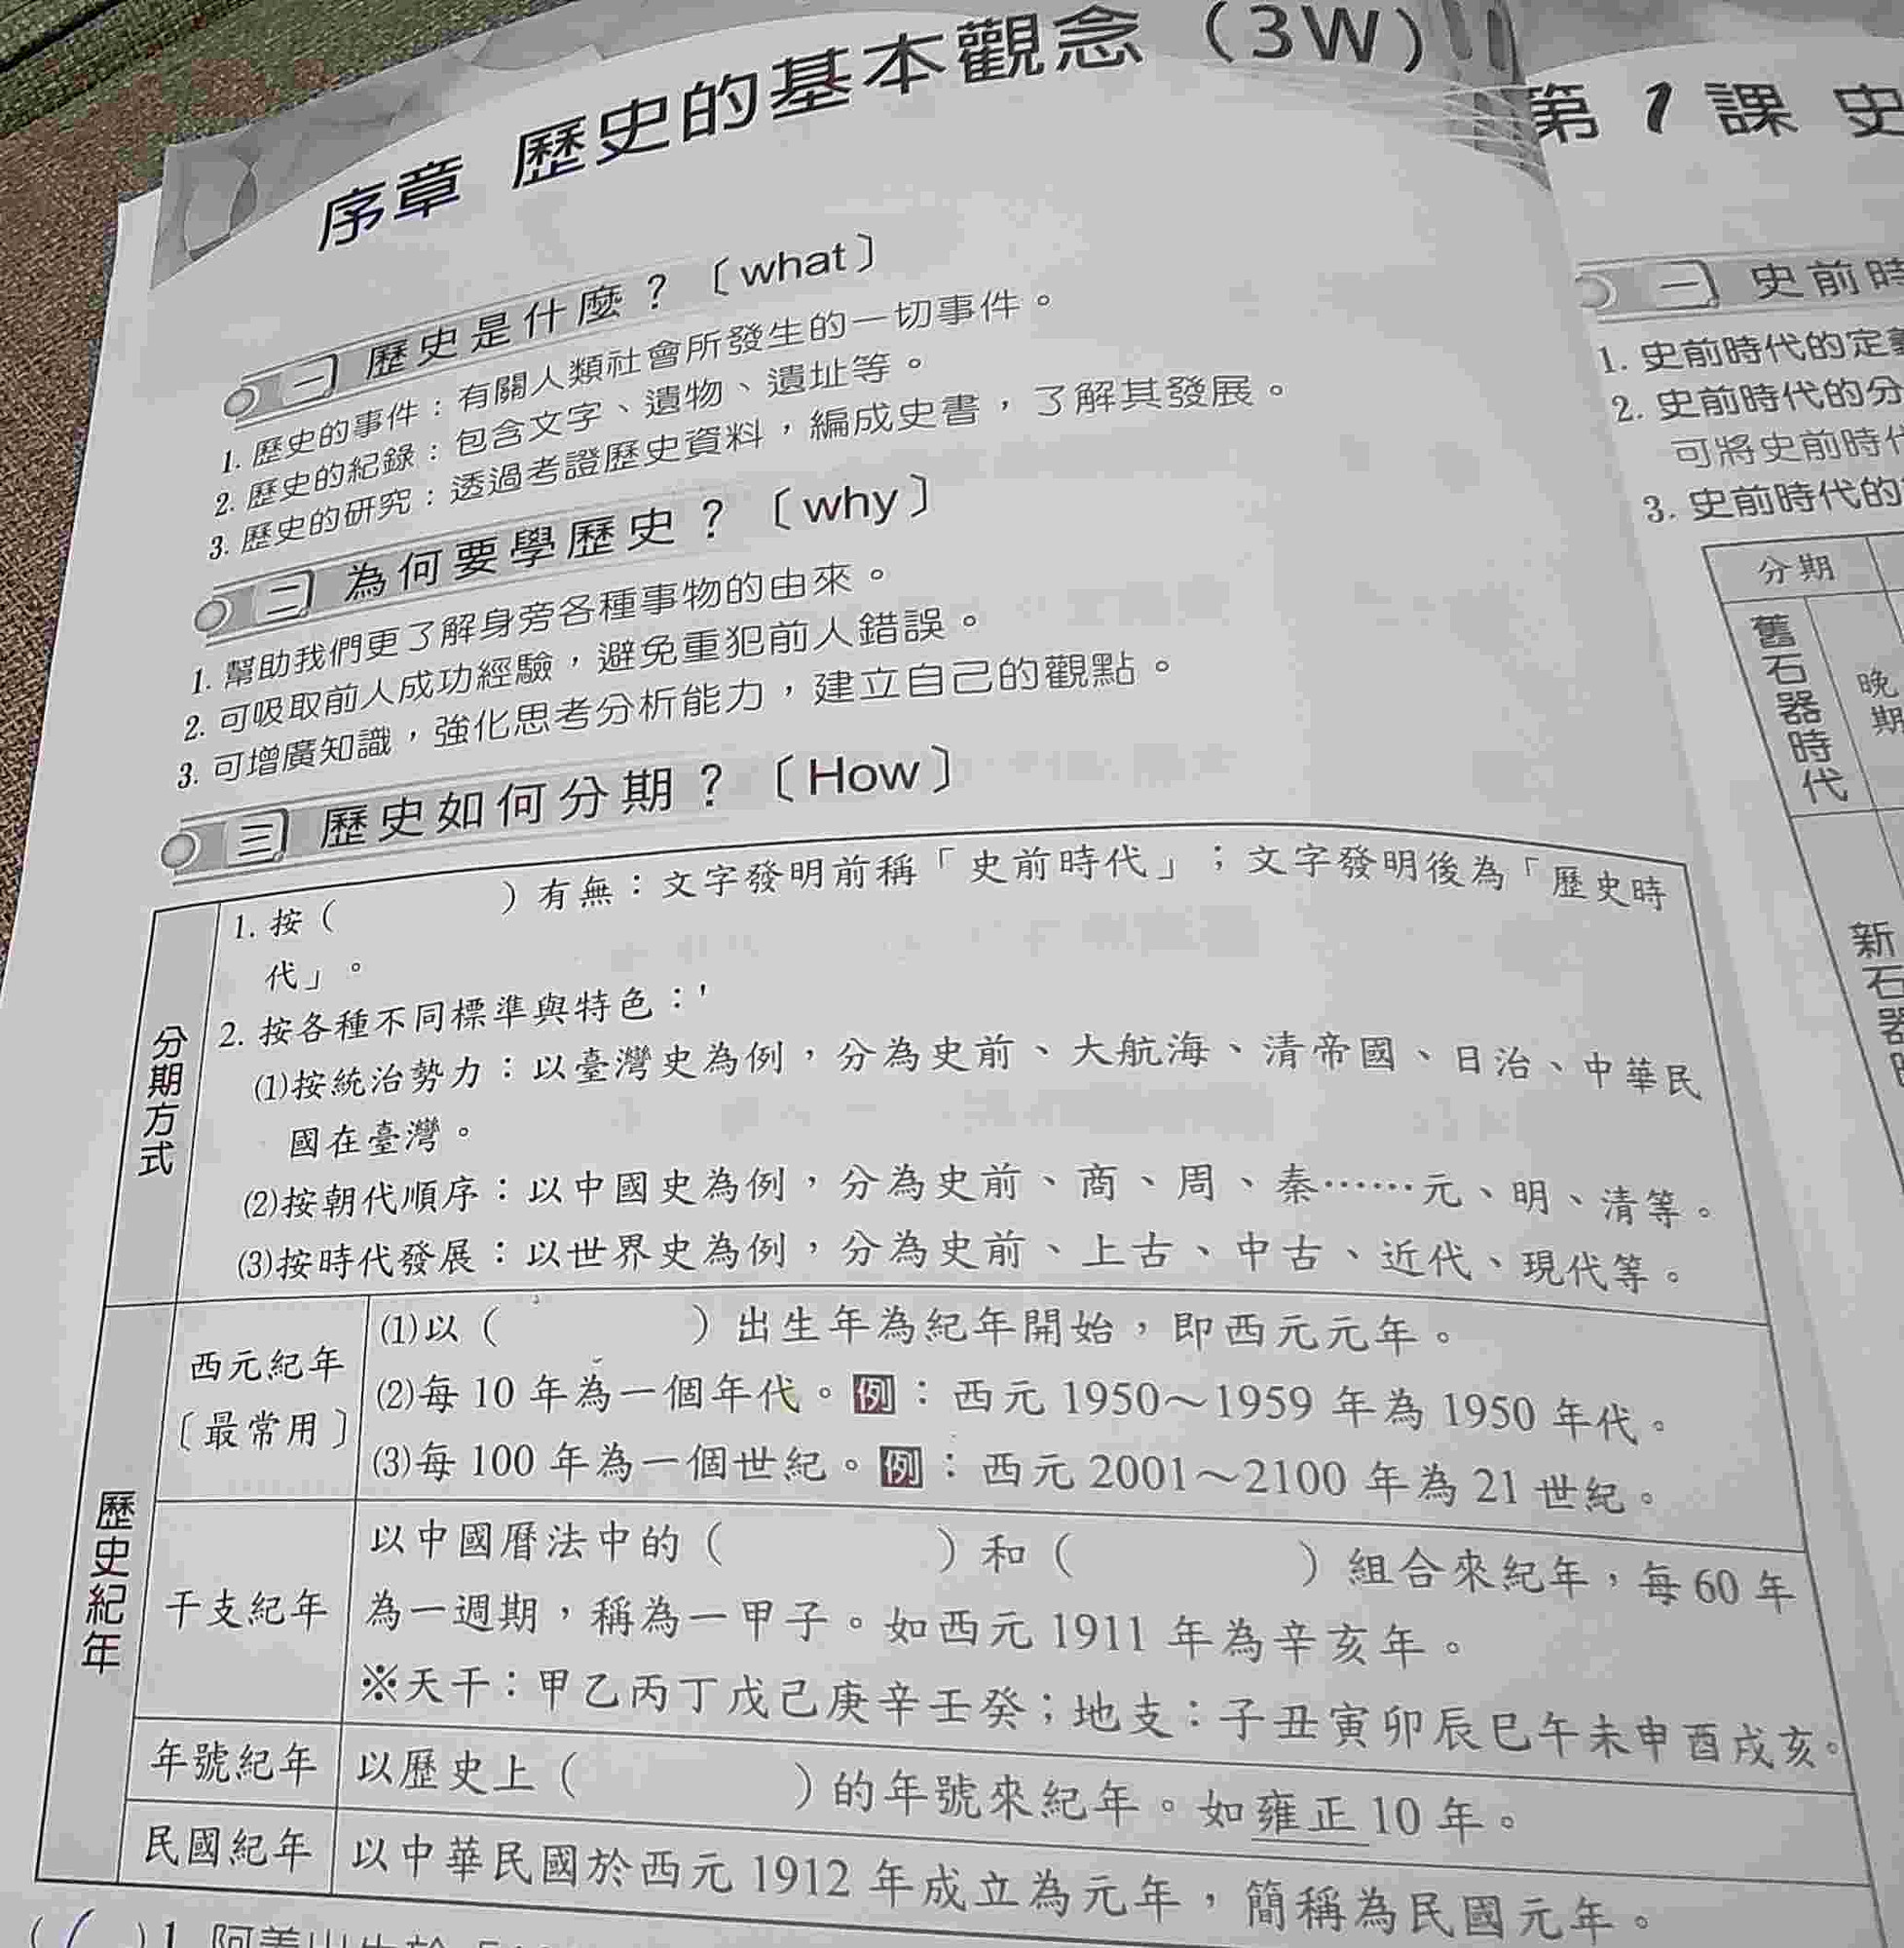 序章 歷史的基本觀念（3W）
一 歷史是什麼？〔what〕
1. 歷史的事件：有關人類社會所發生的一切事件。
2. 歷史的紀錄：包含文字、遺物、遺址等。
3. 歷史的研究：透過考證歷史資料，編成史書，了解其發展。
二 為何要學歷史？〔why〕
1. 幫助我們更了解身旁各種事物的由來。
2. 可吸取前人成功經驗，避免重犯前人錯誤。
3. 可增廣知識，強化思考分析能力，建立自己的觀點。
三 歷史如何分期？〔How〕
分期方式
1. 按（　　　　）有無：文字發明前稱「史前時代」；文字發明後為「歷史時
代」。
2. 按各種不同標準與特色：
⑴按統治勢力：以臺灣史為例，分為史前、大航海、清帝國、日治、中華民
國在臺灣。
⑵按朝代順序：以中國史為例，分為史前、商、周、秦……元、明、清等。
⑶按時代發展：以世界史為例，分為史前、上古、中古、近代、現代等。
歷史紀年
西元紀年
〔最常用〕
⑴以（　　　　）出生年為紀年開始，即西元元年。
⑵每 10 年為一個年代。例：西元 1950～1959 年為 1950 年代。
⑶每 100 年為一個世紀。例：西元 2001～2100 年為 21 世紀。
干支紀年
以中國曆法中的（　　　　）和（　　　　）組合來紀年，每 60 年
為一週期，稱為一甲子。如西元 1911 年為辛亥年。
※天干：甲乙丙丁戊己庚辛壬癸；地支：子丑寅卯辰巳午未申酉戌亥。
年號紀年
以歷史上（　　　　）的年號來紀年。如雍正 10 年。
民國紀年
以中華民國於西元 1912 年成立為元年，簡稱為民國元年。
（　）1.
第 1 課 史
一 史前時
1. 史前時代的定
2. 史前時代的分
可將史前時
3. 史前時代的
分期
舊石器時代
晚期
新石器